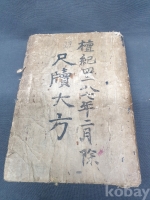 檀紀四二八七年二月除
尺牘大方
kobay